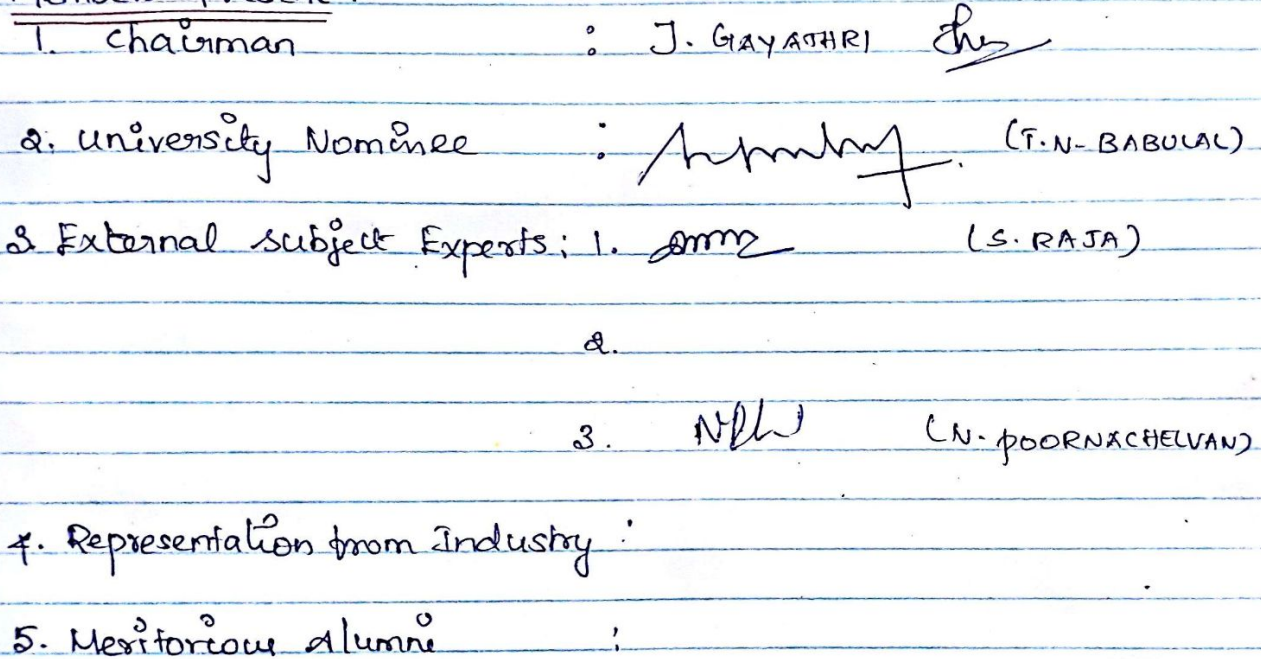 1. Chairman : J. GAYATHRI
2. University Nominee : (T.N. BABULAL)
3 External subject Experts: 1. (S. RAJA)
2.
3. (N. POORNACHELVAN)
4. Representation from Industry :
5. Meritorious Alumni :